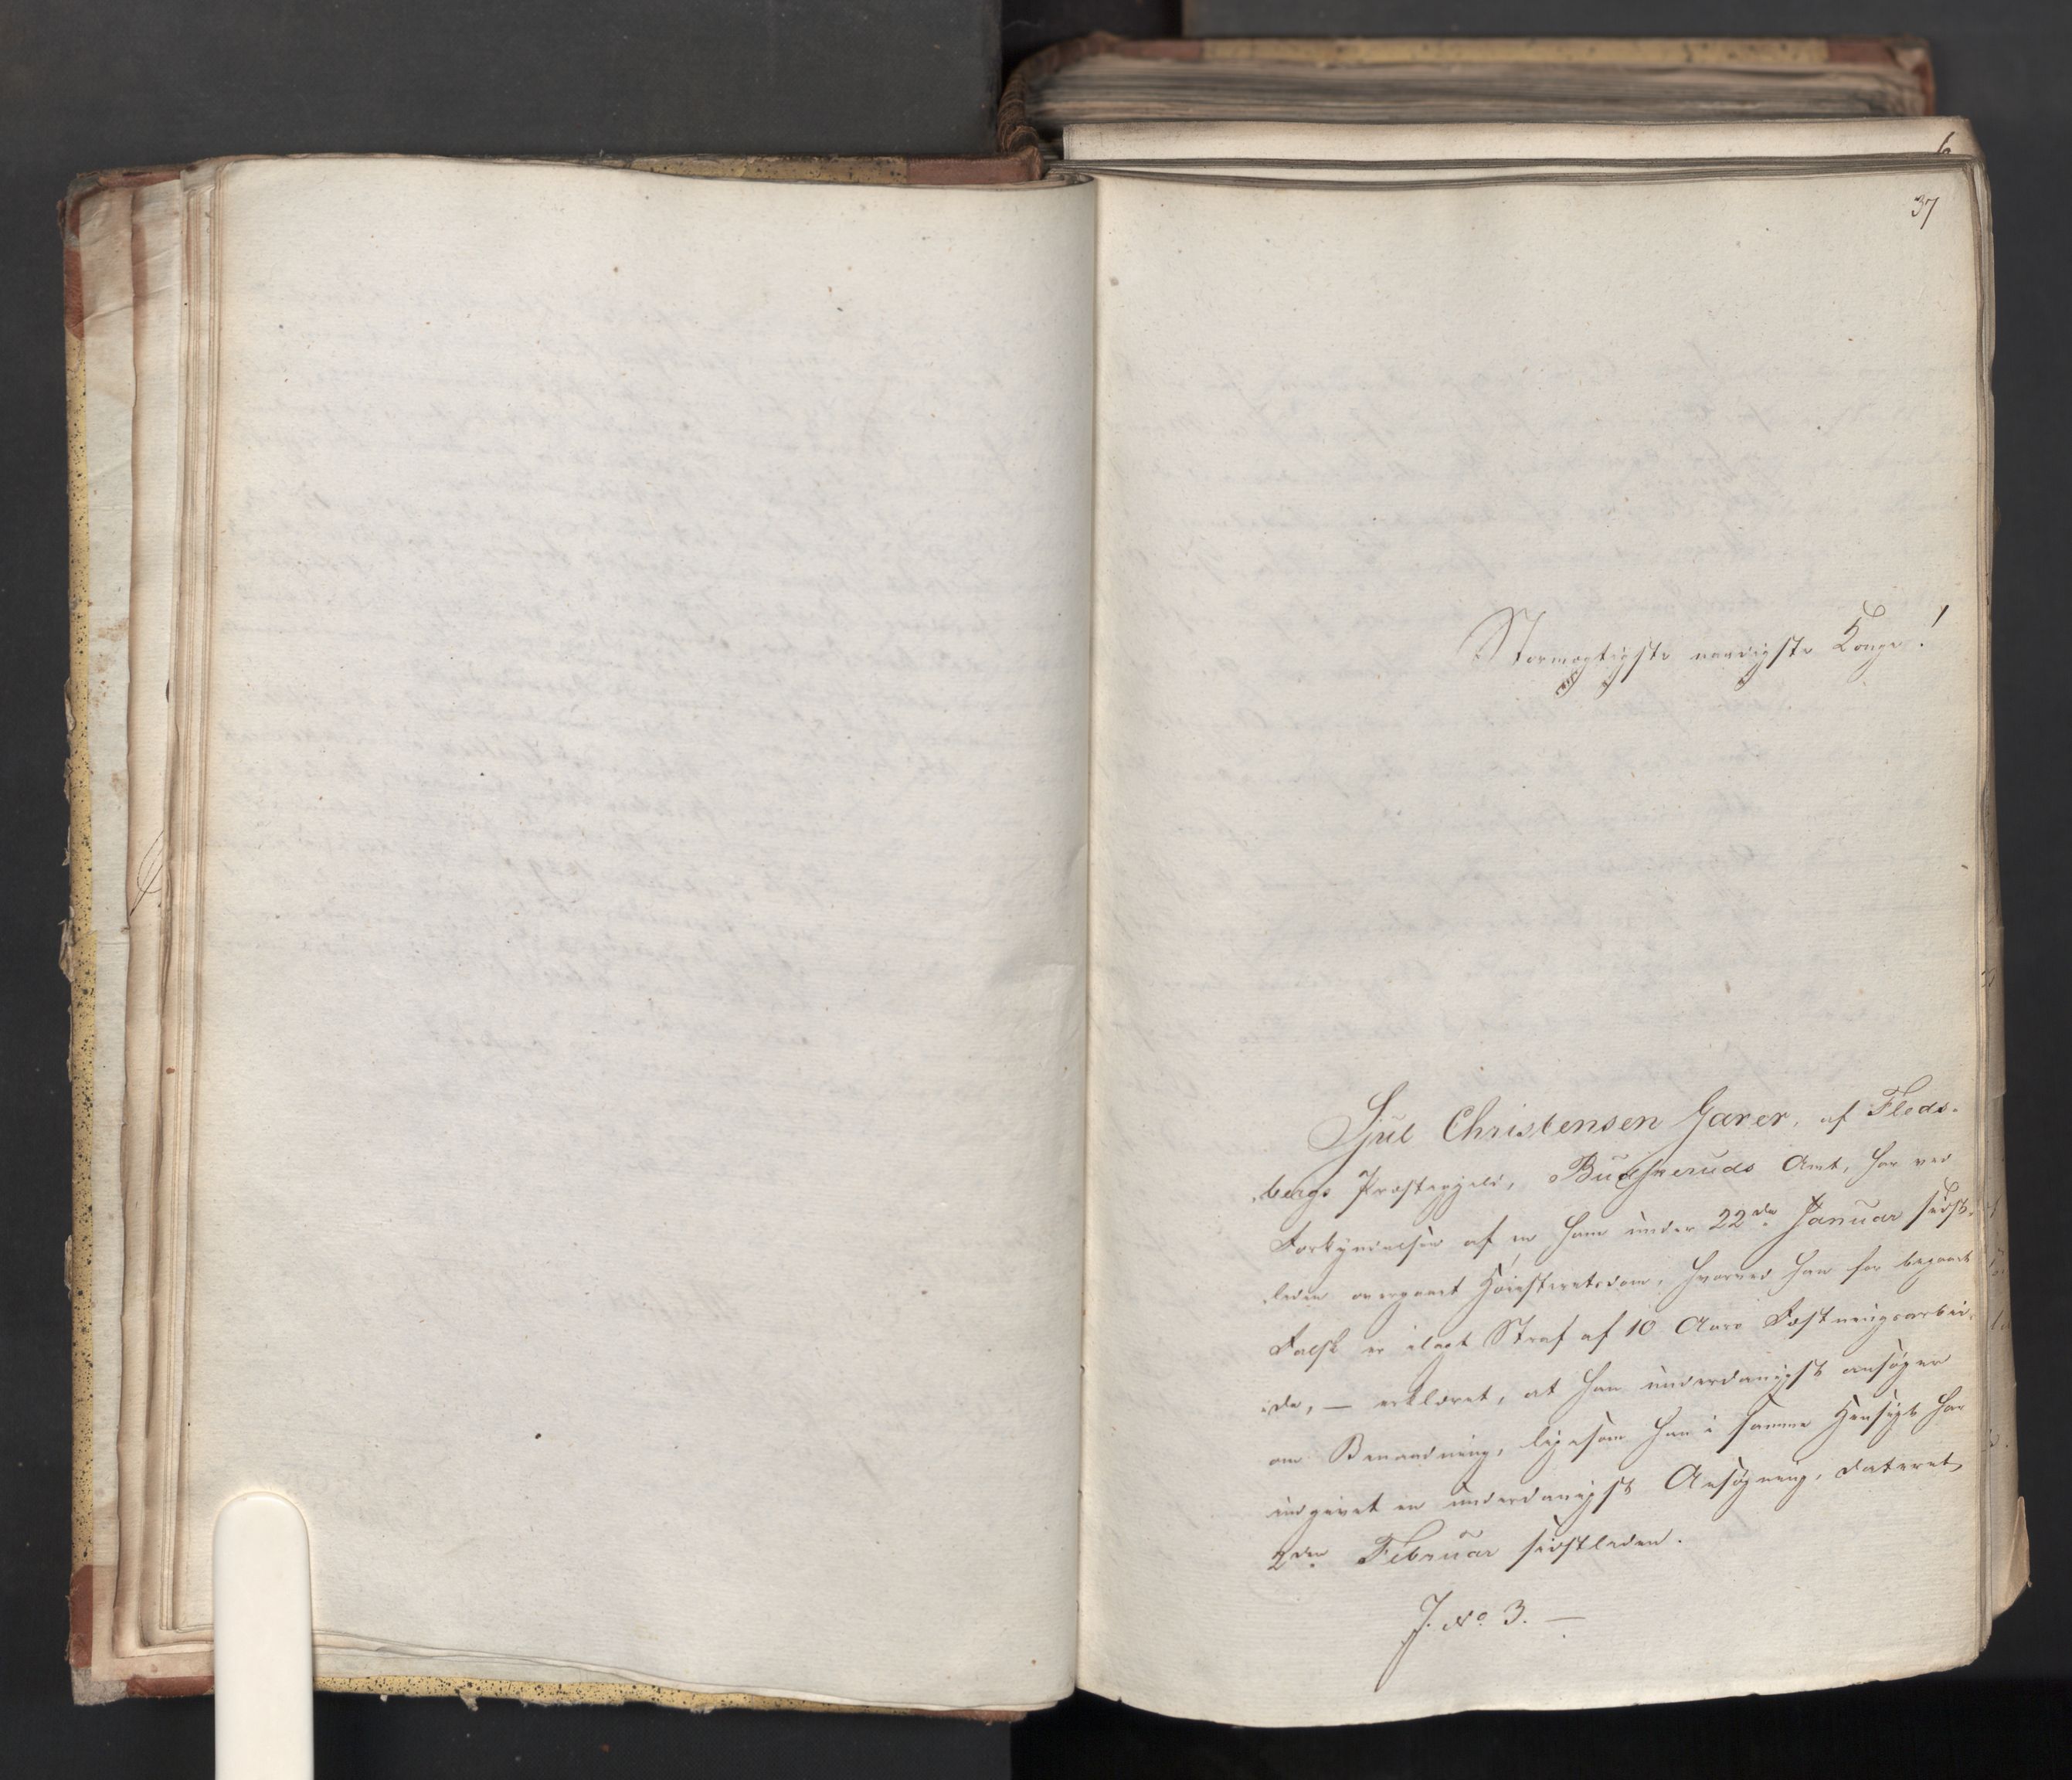 37
Stormægtigste naadigste Konge!
Sjul Christensen Garer, af Fleds-
bergs Præstegjeld, Buskeruds Amt, har ved
Forkyndelsen af en ham under 22de Januar sidst-
leden overgaaet Høiesteretsdom, hvorved han for begaaet
Falsk er ilagt Straf af 10 Aars Fæstningsarbei-
de, — erklæret, at han underdanigst ansøger
om Benaadning, ligesom han i samme Hensigt har
indgivet en underdanigst Ansøgning, dateret
2den Februar sidstleden.
J. No. 3. —